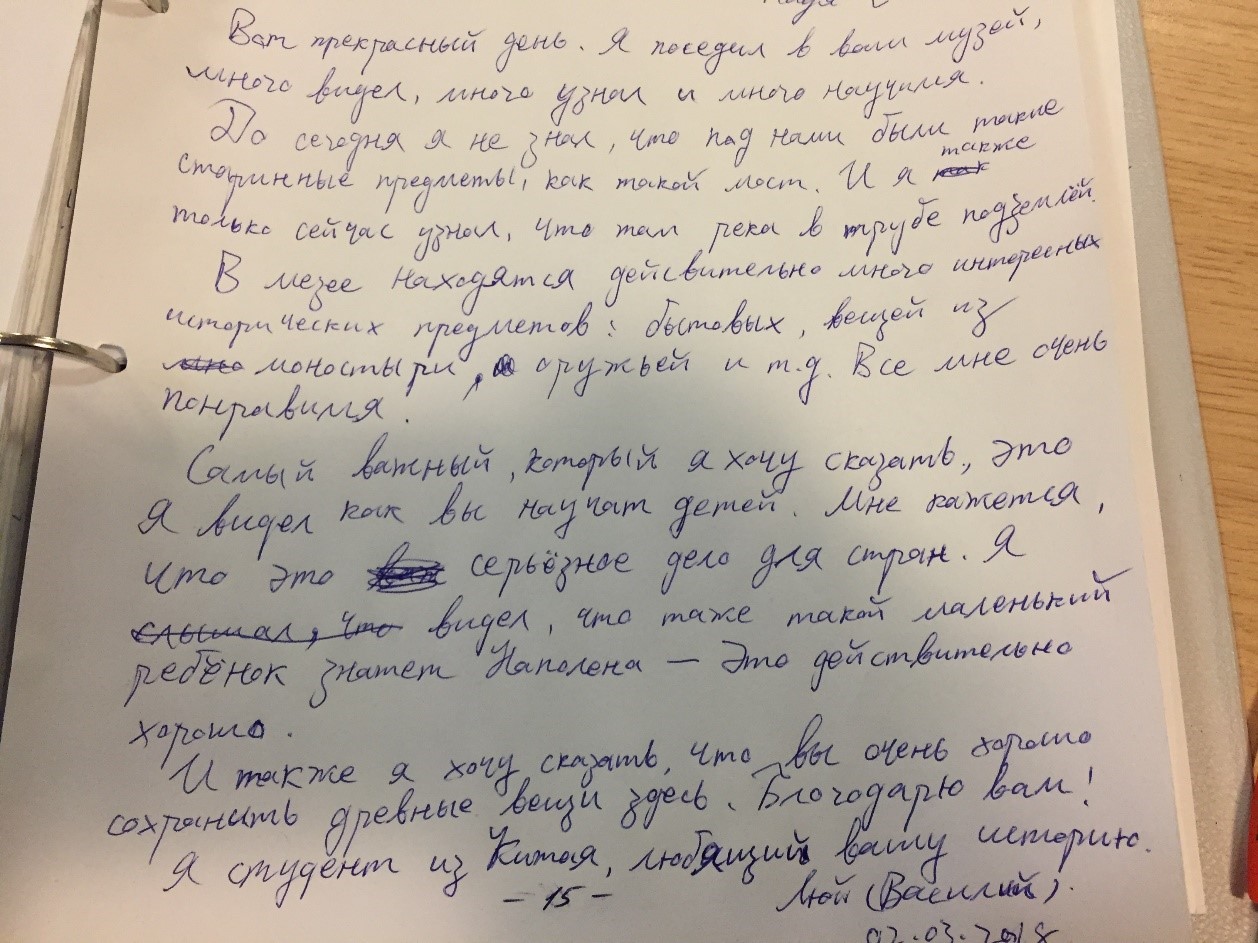 Вот прекрасный день. Я поседил в ваш музей,
много видел, много узнал и много научился.
До сегодня я не знал, что под нами были такие
старинные предметы, как такой мост. И я также
только сейчас узнал, что там река в трубе подземлёй.
В мезее находятся действительно много интересных
исторических предметов: бытовых, вещей из
моностыри, оружьей и т.д. Все мне очень
понравился.
Самый важный, который я хочу сказать, это
я видел как вы научат детей. Мне кажется,
что это серьёзное дело для стран. Я
видел, что таже такой маленький
ребёнок знатет Наполена — Это действительно
хорошо.
И также я хочу сказать, что вы очень хорошо
сохранить древные вещи здесь. Благодарю вам!
Я студент из Китая, любящий вашу историю.
- 15 -
Люй (Василий).
02.03.2018